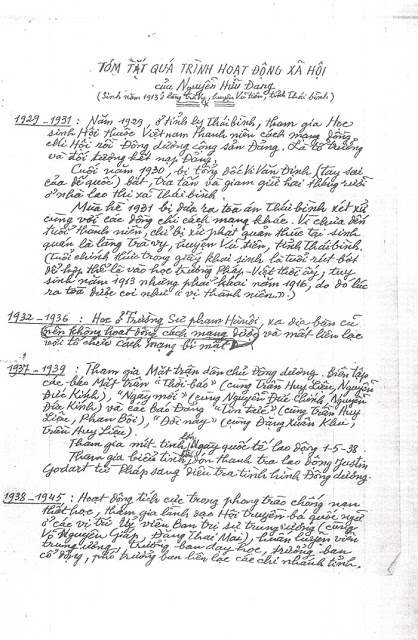 TÓM TẮT QUÁ TRÌNH HOẠT ĐỘNG XÃ HỘI
của Nguyễn Hữu Đang
(Sinh năm 1913 ở làng Trà Vy, huyện Vũ Tiên, tỉnh Thái Bình)
1929-1931 : Năm 1929, ở tỉnh lỵ Thái bình, tham gia Học
sinh Hội thuộc Việt nam thanh niên cách mạng đồng
chí Hội rồi Đông dương cộng sản Đảng. Là tổ trưởng
và đối tượng kết nạp Đảng.
Cuối năm 1930, bị tổng đốc Vi Văn Định (tay sai
của đế quốc) bắt tra tấn và giam giữ hai tháng rưỡi
ở nhà lao thị xã Thái bình.
Mùa hè 1931 bị đưa ra toà án Thái bình xét xử
cùng với các đồng chí cách mạng khác. Vì chưa đến
tuổi thành niên, chỉ bị xử phạt quản thúc tại sinh
quán là làng Trà vy, huyện Vũ tiên, tỉnh Thái bình.
(Tuổi chính thức trong giấy khai sinh là tuổi rút bớt
để hợp thể lệ vào học trường Pháp-Việt thời ấy, tuy
sinh năm 1913 nhưng phải khai năm 1916, do đó lúc
ra toà được coi như "vị thành niên".)
1932-1936 : Học ở Trường Sư phạm Hà nội, xa địa bàn cũ
nên không hoạt động cách mạng được và mất liên lạc
với tổ chức cách mạng bí mật
1937-1939 : Tham gia Mặt trận dân chủ Đông dương. Biên tập
các báo Mặt trận "Thời báo" (cùng Trần Huy Liệu, Nguyễn
Đức Kính), "Ngày mới" (cùng Nguyễn Đức Chính, Nguyễn
Đức Kính) và các báo Đảng "Tin tức" (cùng Trần Huy
Liệu, Phan Bôi), "Đời nay" (cùng Đặng Xuân Khu,
Trần Huy Liệu)
Tham gia mít tinh Ngày quốc tế lao động 1-5-38.
Tham gia biểu tình đón thanh tra lao động Justin
Godart từ Pháp sang điều tra tình hình Đông dương.
1938-1945 : Hoạt động tích cực trong phong trào chống nạn
thất học, tham gia lãnh đạo Hội truyền bá quốc ngữ
ở các vị trí uỷ viên Ban trị sự trung ương (cùng
Võ Nguyên Giáp, Đặng Thai Mai), huấn luyện viên
trung ương, trưởng ban dạy học, trưởng ban
cổ động, phó trưởng ban liên lạc các chi nhánh tỉnh.